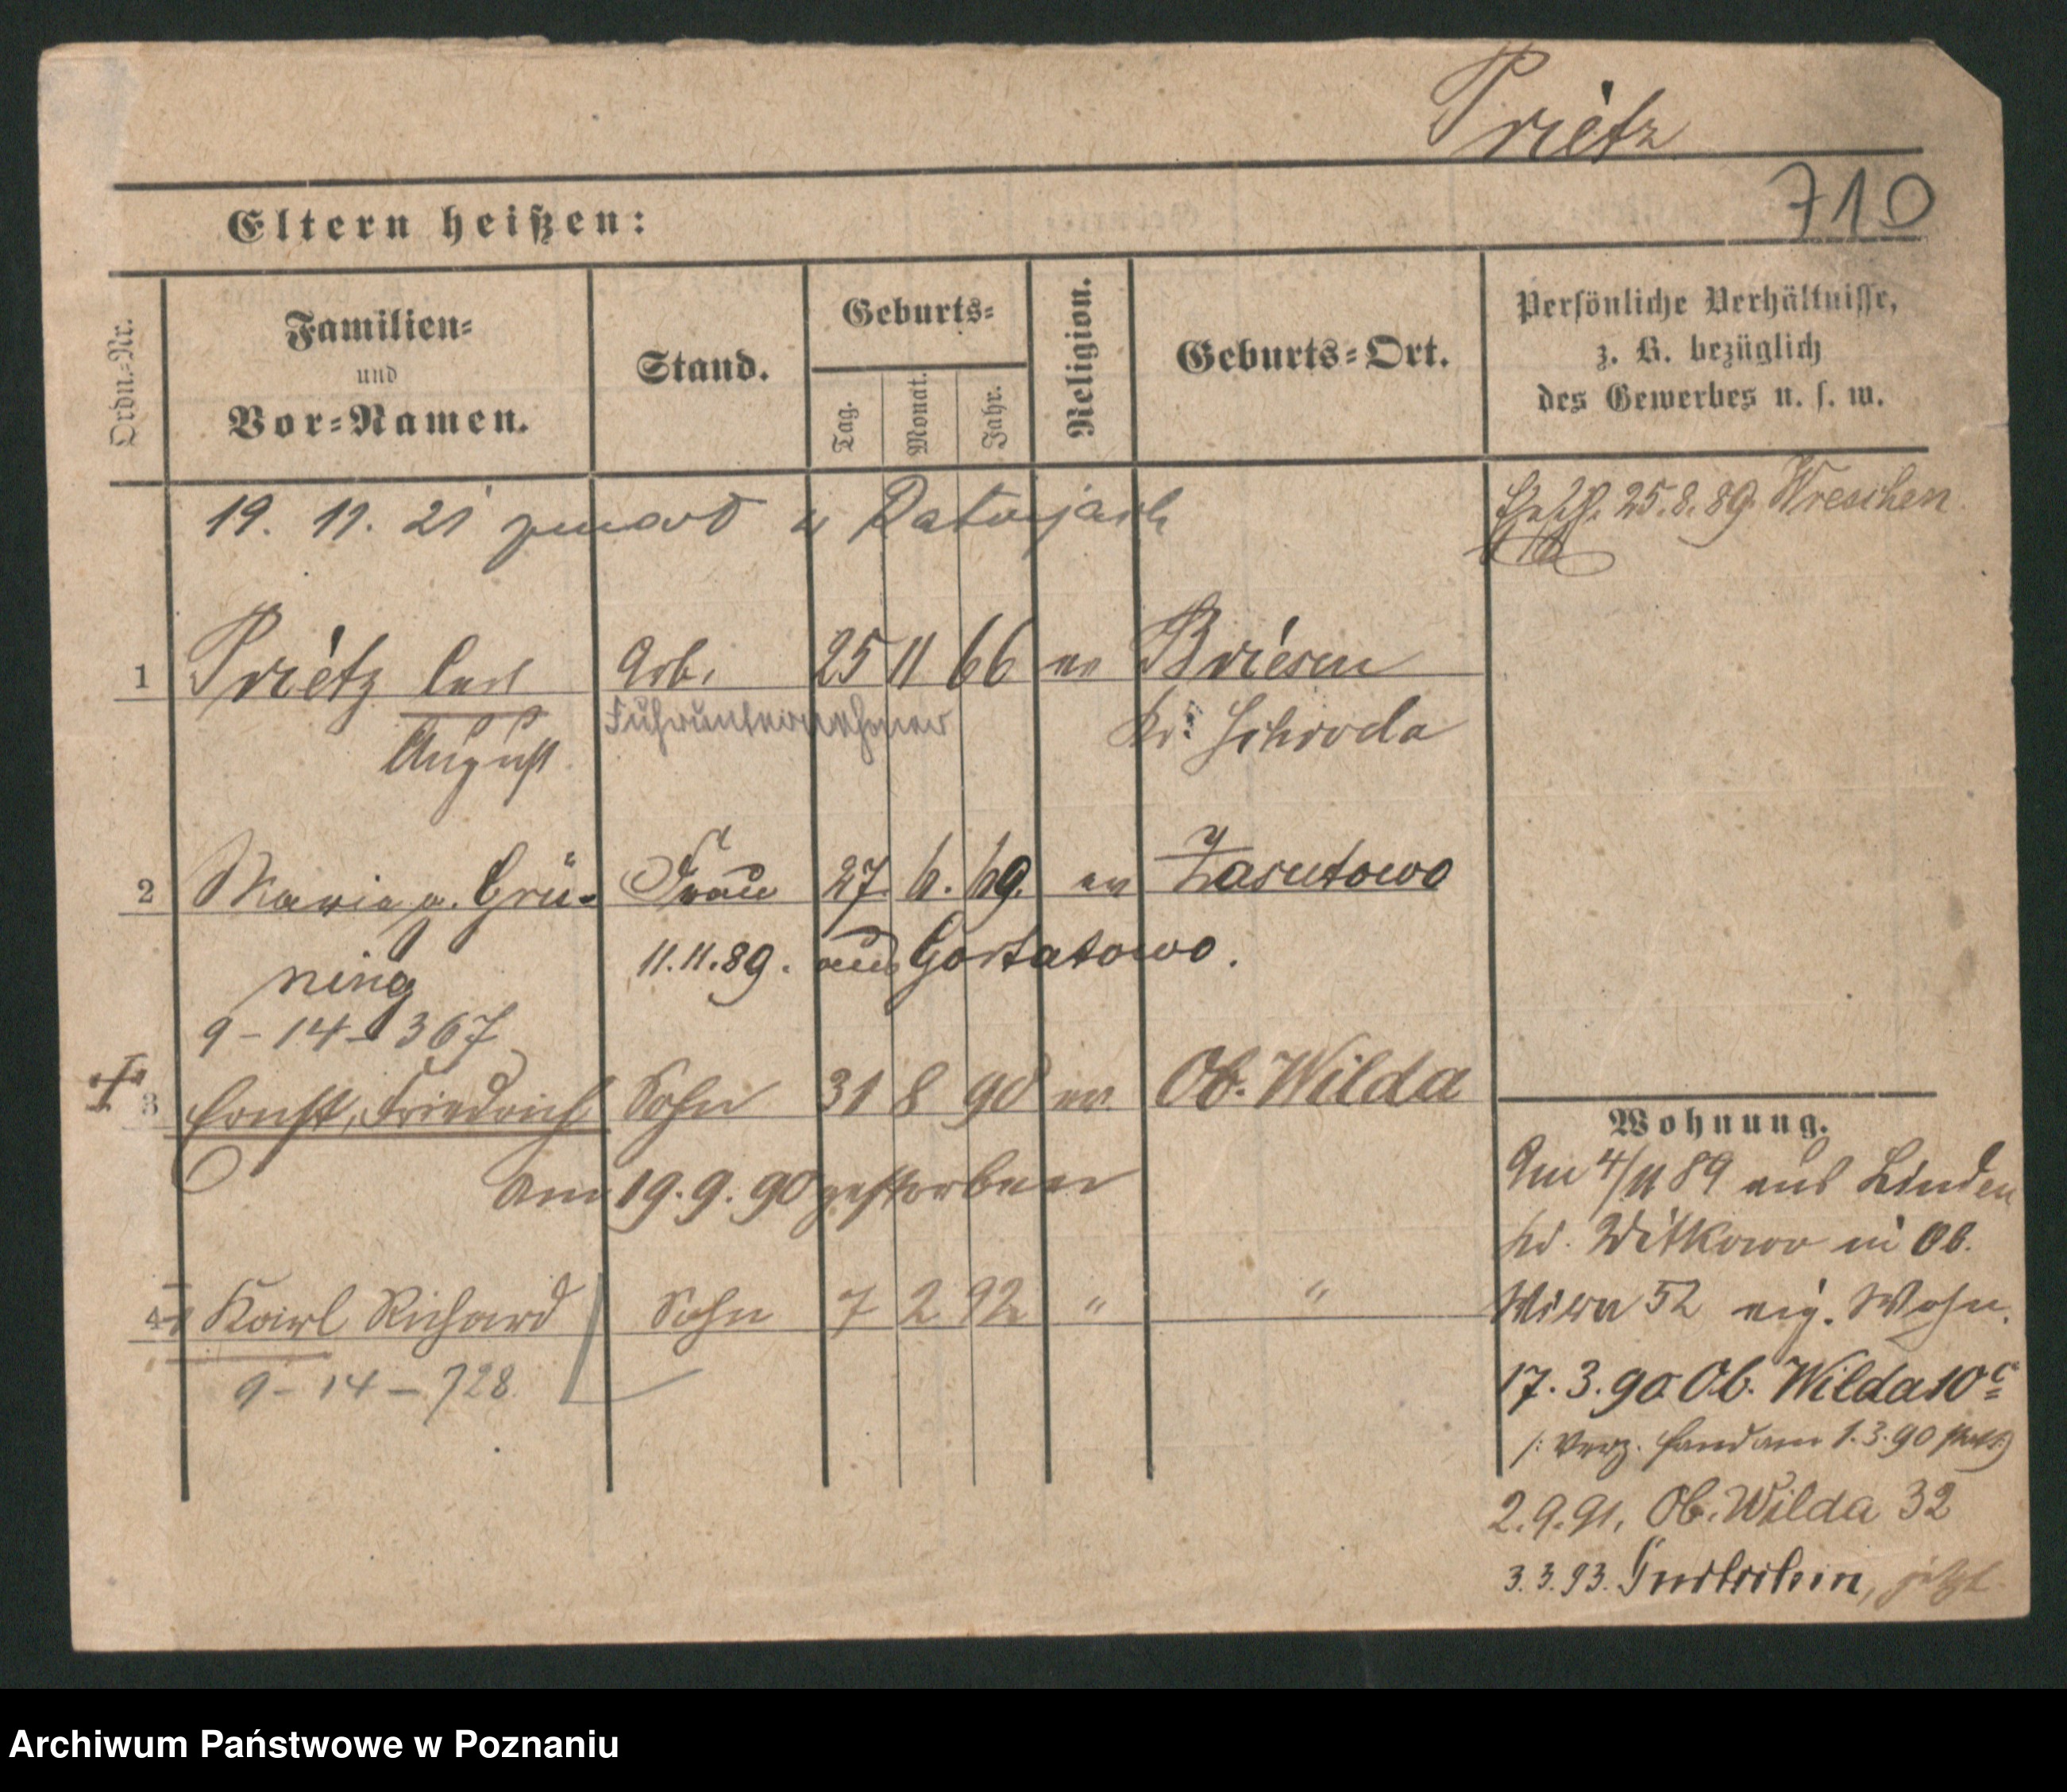 Prietz
710
Eltern heißen:
Ordn.-Nr.
Familien-
und
Vor-Namen.
Stand.
Geburts-
Tag.
Monat.
Jahr.
Religion.
Geburts-Ort.
Persönliche Verhältnisse,
z. B. bezüglich
des Gewerbes u. s. w.
19. 11. 21 zmarł w
25.8.89. Wreschen
1 Prietz Carl Arb. 25 11 66 ev Briesen
August Fuhrunternehmer Kr. Schroda
2 Marie g. Grü- Frau 27. 6. 69. ev Zasutowo
ning 11.11.89. aus Gortatowo.
9-14-367
3 Ernst, Friedrich Sohn 31 8 90 ev. Ob. Wilda
am 19.9.90 gestorben
4 Karl Richard Sohn 7 2 92 " "
9-14-728
Wohnung.
Am 4/11 89 aus Linden
Kr. Witkowo in Ob.
52 eig. Wohn.
17.3.90 Ob. Wilda 10c
/: Verz. fand am 1.3.90 statt :/
2.9.91. Ob. Wilda 32
3.3.93. jetzt
Archiwum Państwowe w Poznaniu